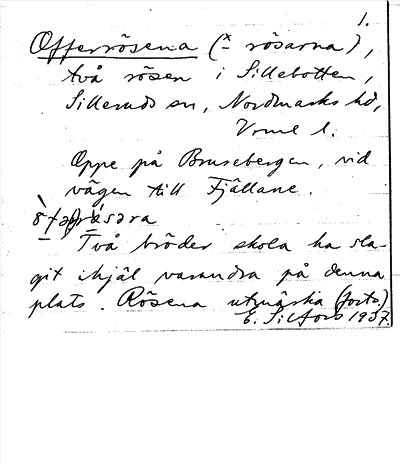 1.
Offerrösena (x̲ rösarna),
två rösen i Sillebotten,
Silleruds sn, Nordmarks hd,
Vrml l.
Oppe på Brusebergen, vid
vägen till Fjällane.
Två bröder skola ha sla-
git ihjäl varandra på denna
plats. Rösena utmärka (forts.)
E. Silfors 1937.